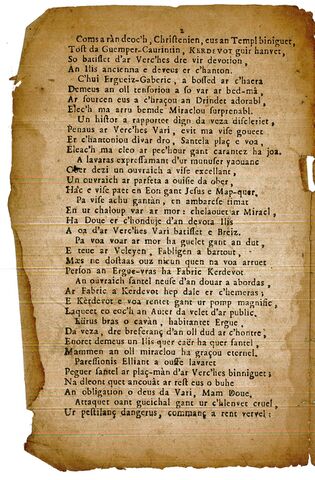 2
Coms a ràn deoc'h, Christenien, eus an Templ biniguet,
Tost da Guemper-Caurintin, KERDEVOT guir hanvet,
So batisset d'ar Verc'hes dre vir devotion,
An Ilis ancienna e deveus er c'hanton.
C'hui Ergueiz-Gaberic, a bossed ar c'haera
Demeus an oll tensoriou a so var ar bed-mà,
Ar sourcen eus a c'hraçou an Drindet adorabl,
Elec'h ma arru bemde Miraclou surprenabl.
Un histor a rapportee dign da veza discleriet,
Penaus ar Verc'hes Vari, evit ma vise goueet
Er c'hantoniou divar dro, Santela plaç e voa,
Eleac'h ma cleo ar pec'hour gant carantez ha joa.
A lavaras expressamant d'ur munuser yaouanc
Ober dezi un ouvraich a vise excellant,
Un ouvraich ar parfeta a ouise da ober,
Hac e vise pæt en Eon gant Jesus e Map-quer.
Pa vise achu gantàn, en ambarcse rimat
En ur chaloup var ar mor: chelaouet ar Miracl,
Ha Doue er c'honduje d'an devota Ilis
A oa d'ar Verc'hes Vari batisset e Breiz.
Pa voa voar ar mor ha guelet gant an dut,
E teue ar Veleyen, Fabligen a bartout,
Mæs ne dostaas ouz nicun quen na voa arruet
Person an Ergue-vras ha Fabric Kerdevot
An ouvraich santel neuse d'an douar a abordas,
Ar Fabric a Kerdevot hep dale er c'hemeras;
E Kerdevot e voa rentet gant ur pomp magnific,
Laqueet eo euc'h an Auter da velet d'ar public.
Eürus bras o cavàn, habitantet Ergue,
Da veza, dre breferanç d'an oll dud ar c'hontre,
Enoret demeus un Ilis quer caër ha quer santel,
Mammen an oll miraclou ha graçou eternel.
Paressionis Elliant a ouffe lavaret
Peguer santel ar plaç-màn d'ar Verc'hes binniguet;
Na dleont quet ancouât ar rest eus o buhe
An obligation o deus da Vari, Mam Doue,
Attaquet oant gueichal gant ur c'hlenvet cruel,
Ur pestilanç dangerus, commanç a rent vervel: